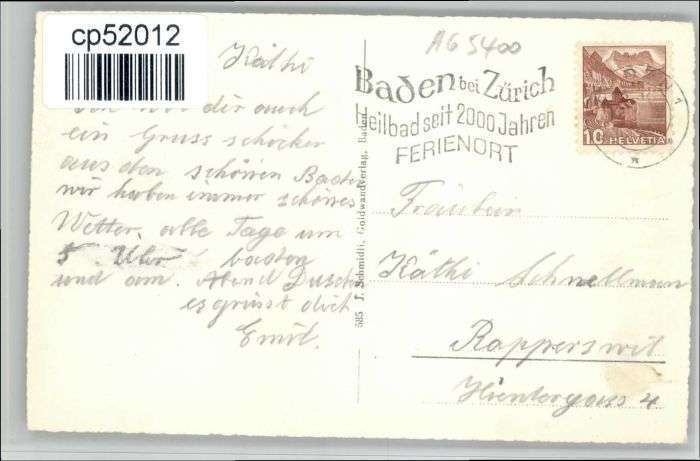 cp52012
Käthi
dir auch
ein Gruss schicken
aus den schönen Baden
wir haben immer schönes
Wetter, alle Tage um
5 Uhr baden
und am. Abend
es grüsst dich
Emil.
585 J. Schmidli, Goldwandverlag, Baden
AG 5400
Baden bei Zürich
Heilbad seit 2000 Jahren
FERIENORT
10 HELVETIA
1
Fräulein
Käthi Schnellman
Rapperswil
Hintergass 4